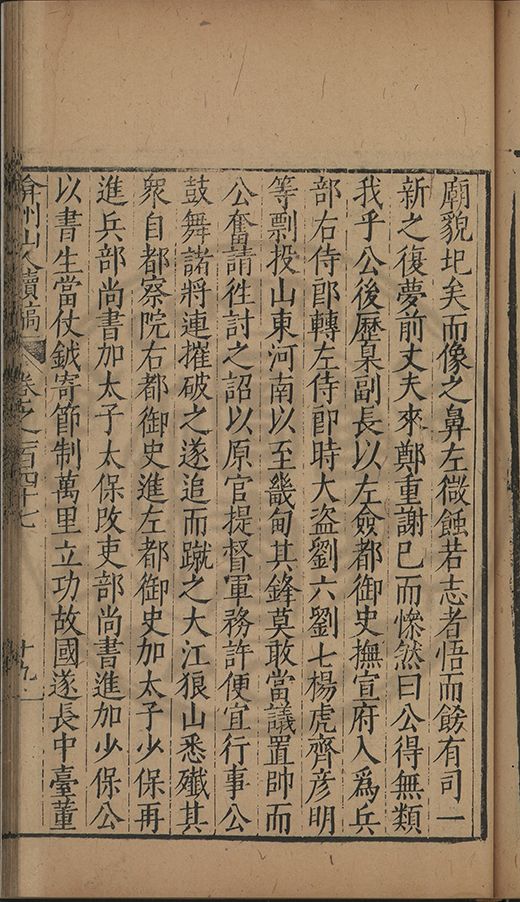 廟貌圮矣而像之鼻左微蝕若志者悟而飭有司一
新之復夢前丈夫來鄭重謝已而愀然曰公得無類
我乎公後歷臬副長以左僉都御史撫宣府入爲兵
部右侍郎轉左侍郎時大盜劉六劉七楊虎齊彦明
等剽投山東河南以至畿甸其鋒莫敢當議置帥而
公奮請徃討之詔以原官提督軍務許便宜行事公
鼓舞諸將連摧破之遂追而蹴之大江狼山悉殲其
衆自都察院右都御史進左都御史加太子少保再
進兵部尚書加太子太保改吏部尚書進加少保公
以書生當仗鉞寄節制萬里立功故國遂長中臺董
弇州山人續稿 卷之一百四十七 十九